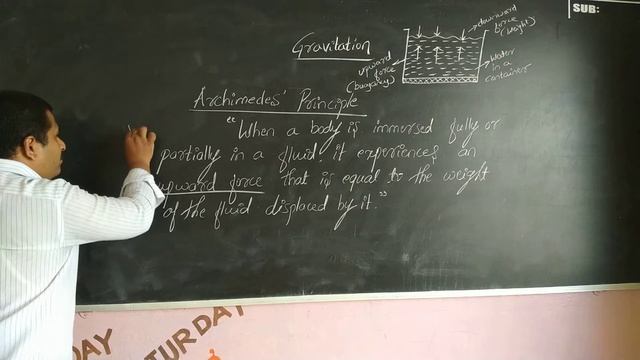 SUB:
Gravitation
downward
force
(weight)
upward
force
(buoyancy)
Water
in a
container
Archimedes' Principle
"When a body is immersed fully or
partially in a fluid, it experiences an
upward force that is equal to the weight
of the fluid displaced by it."
DAY
TURDAY